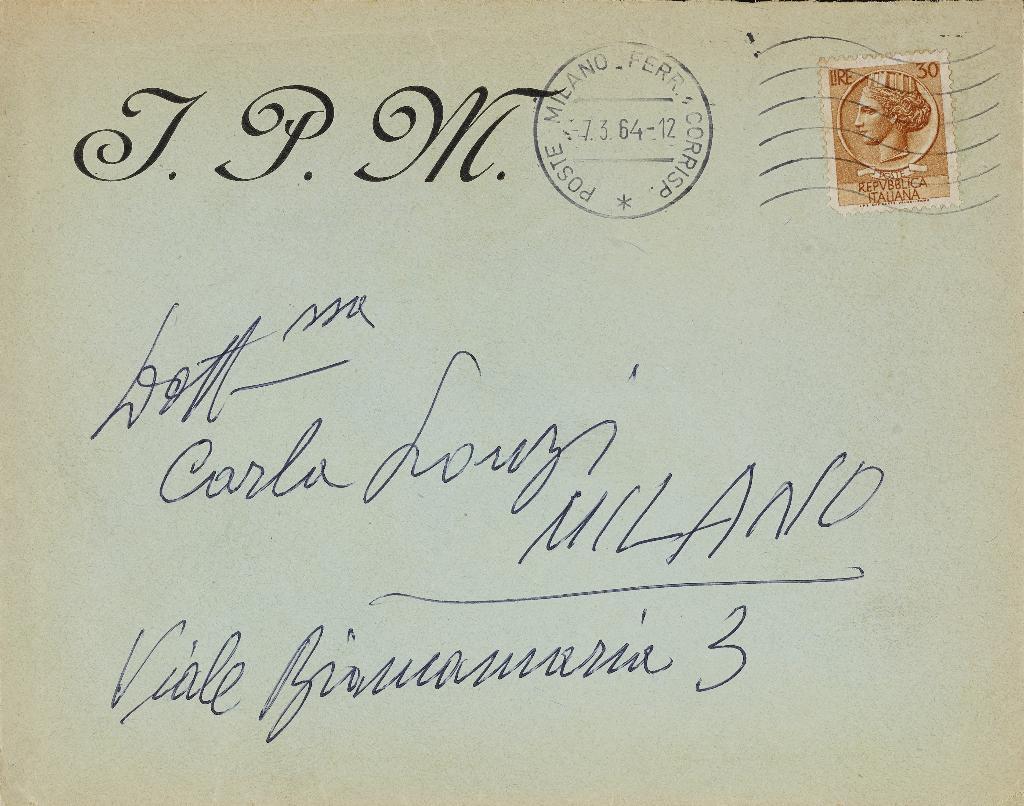 J. P. M.
POSTE MILANO - FERR. CORRISP.
-7.3.64-12
LIRE 30
POSTE
REPVBBLICA
ITALIANA
Dott.ssa
Carla Lonzi
MILANO
Viale Biancamaria 3